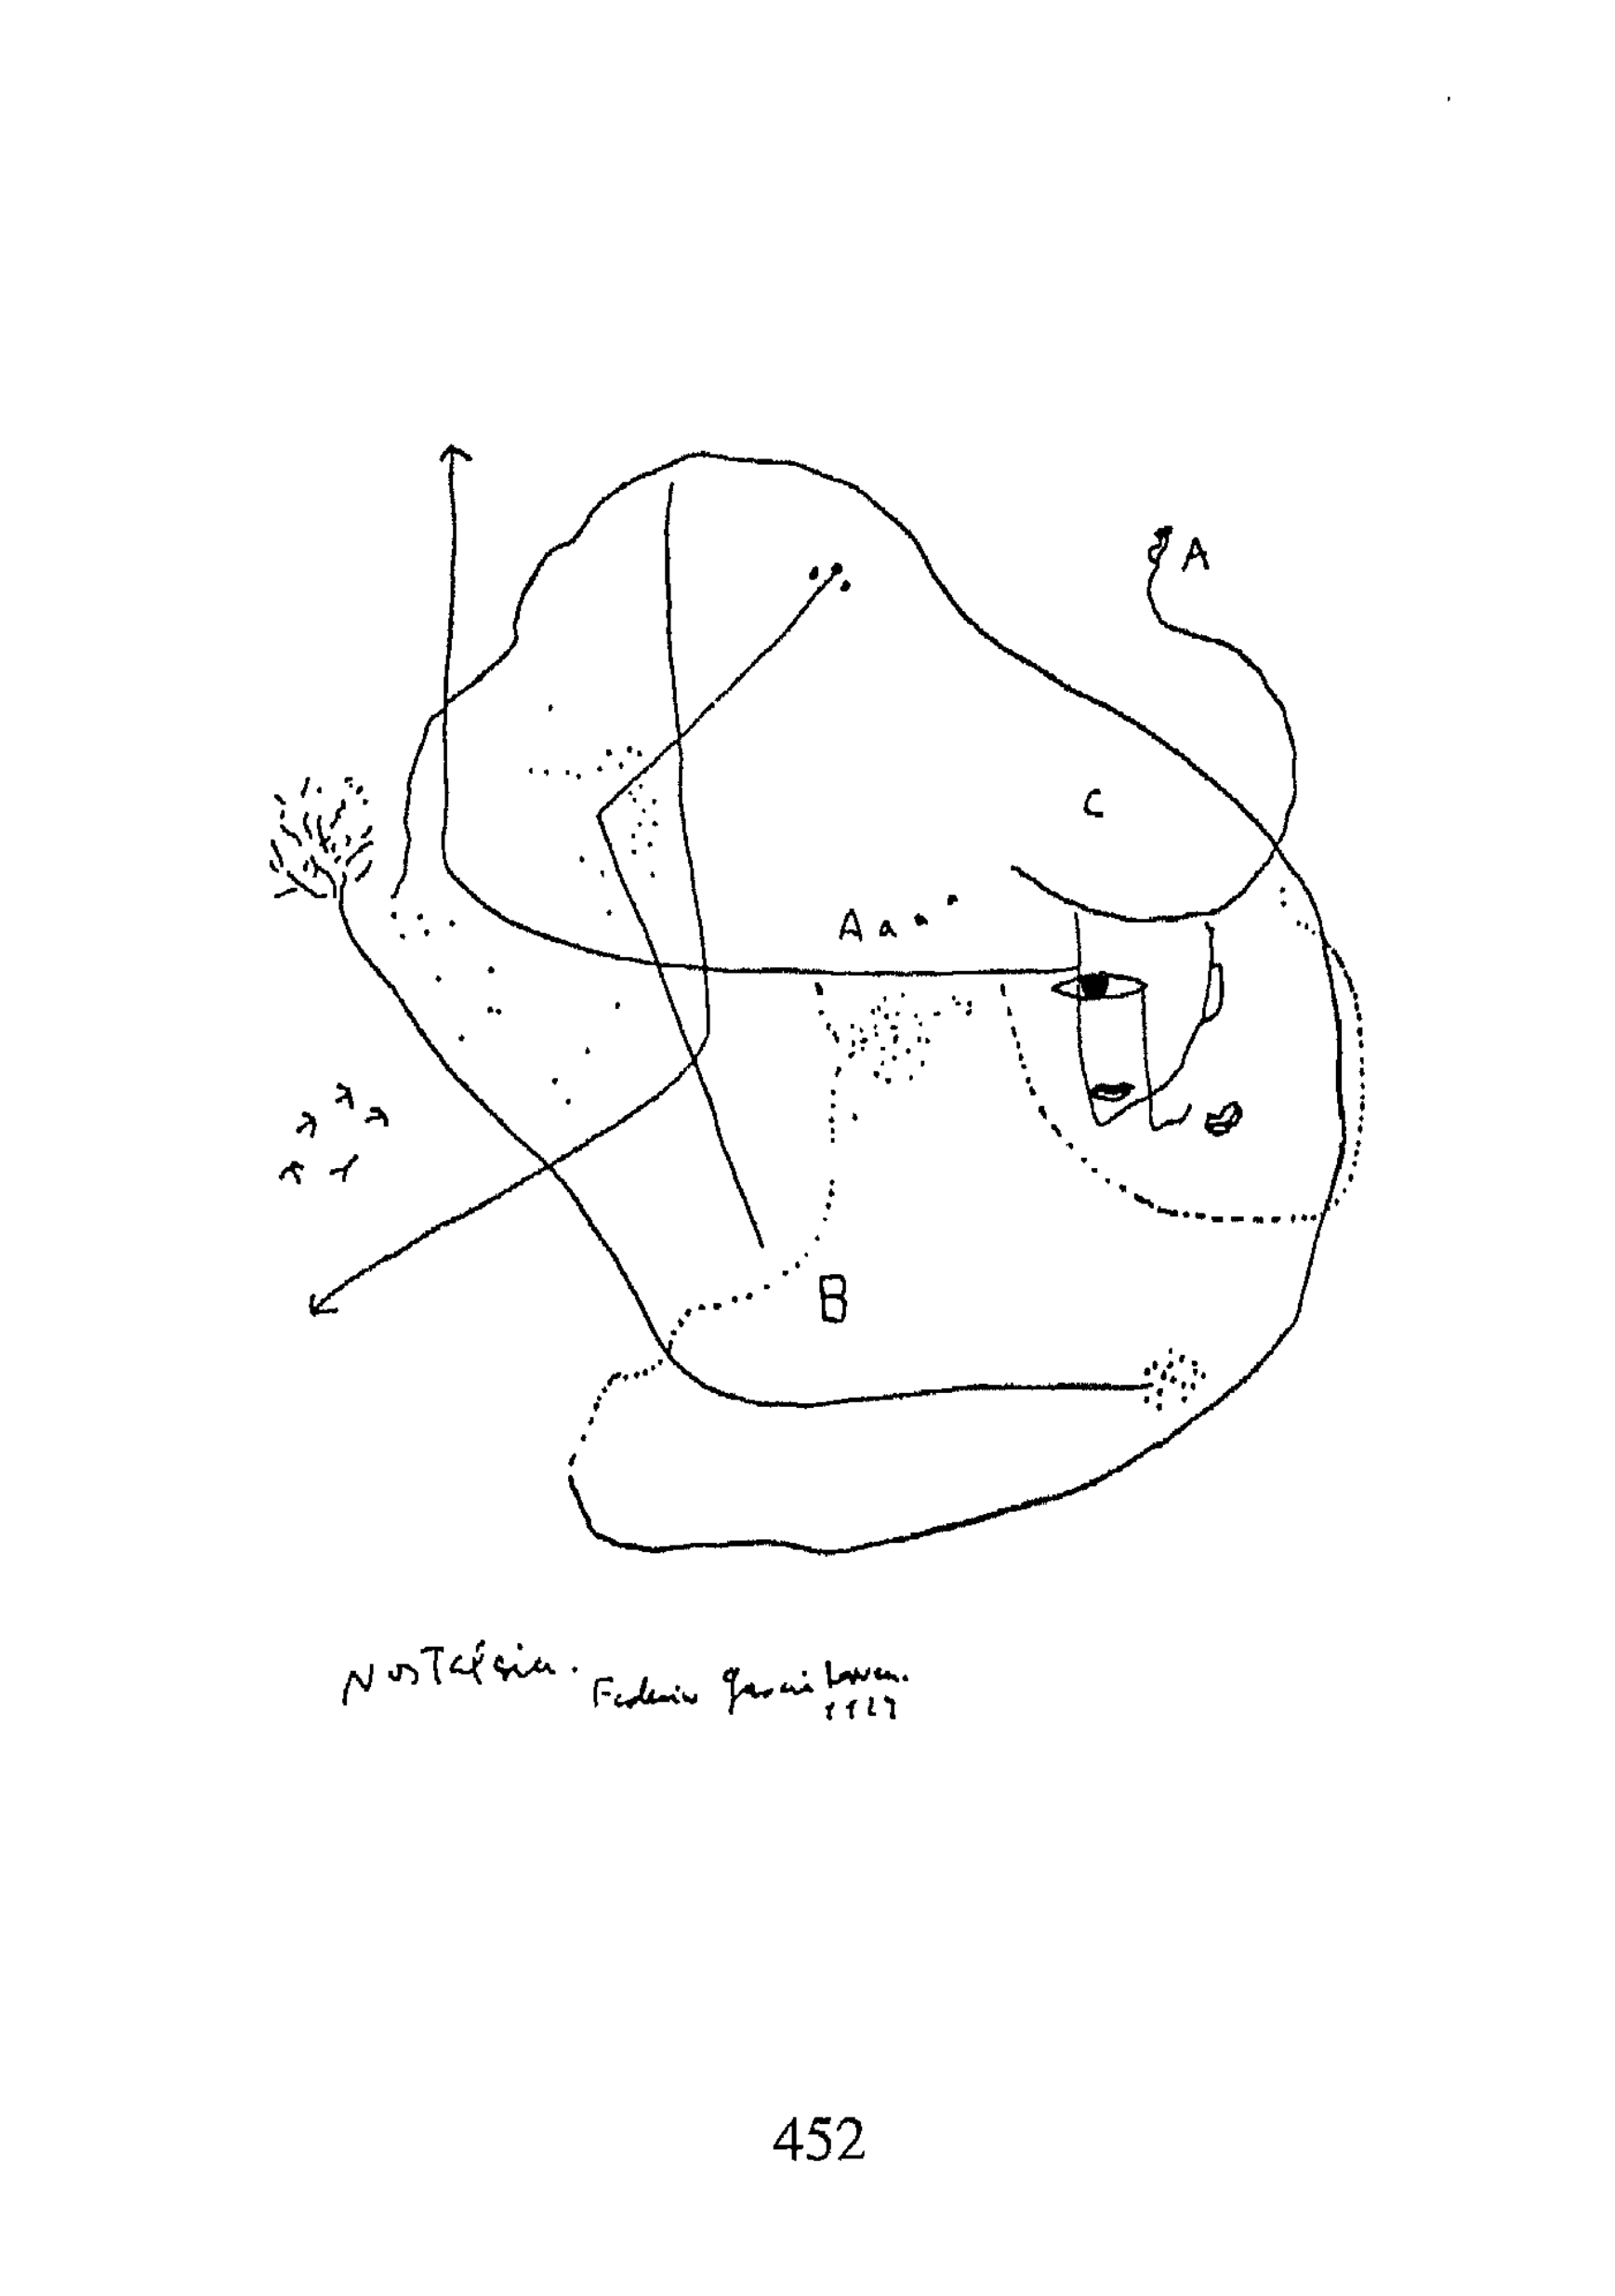 A
C
A a a a
B
Nostalgia.
Federico García Lorca.
1927
452